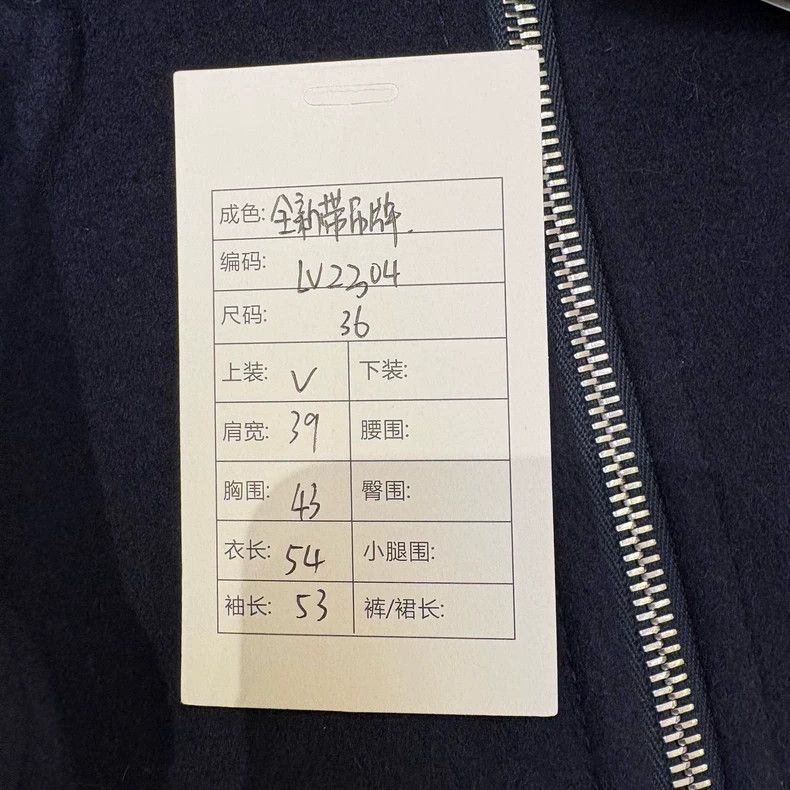 成色: 全新带吊牌.
编码: LV2204
尺码: 36
上装: V 下装:
肩宽: 39 腰围:
胸围: 43 臀围:
衣长: 54 小腿围:
袖长: 53 裤/裙长: